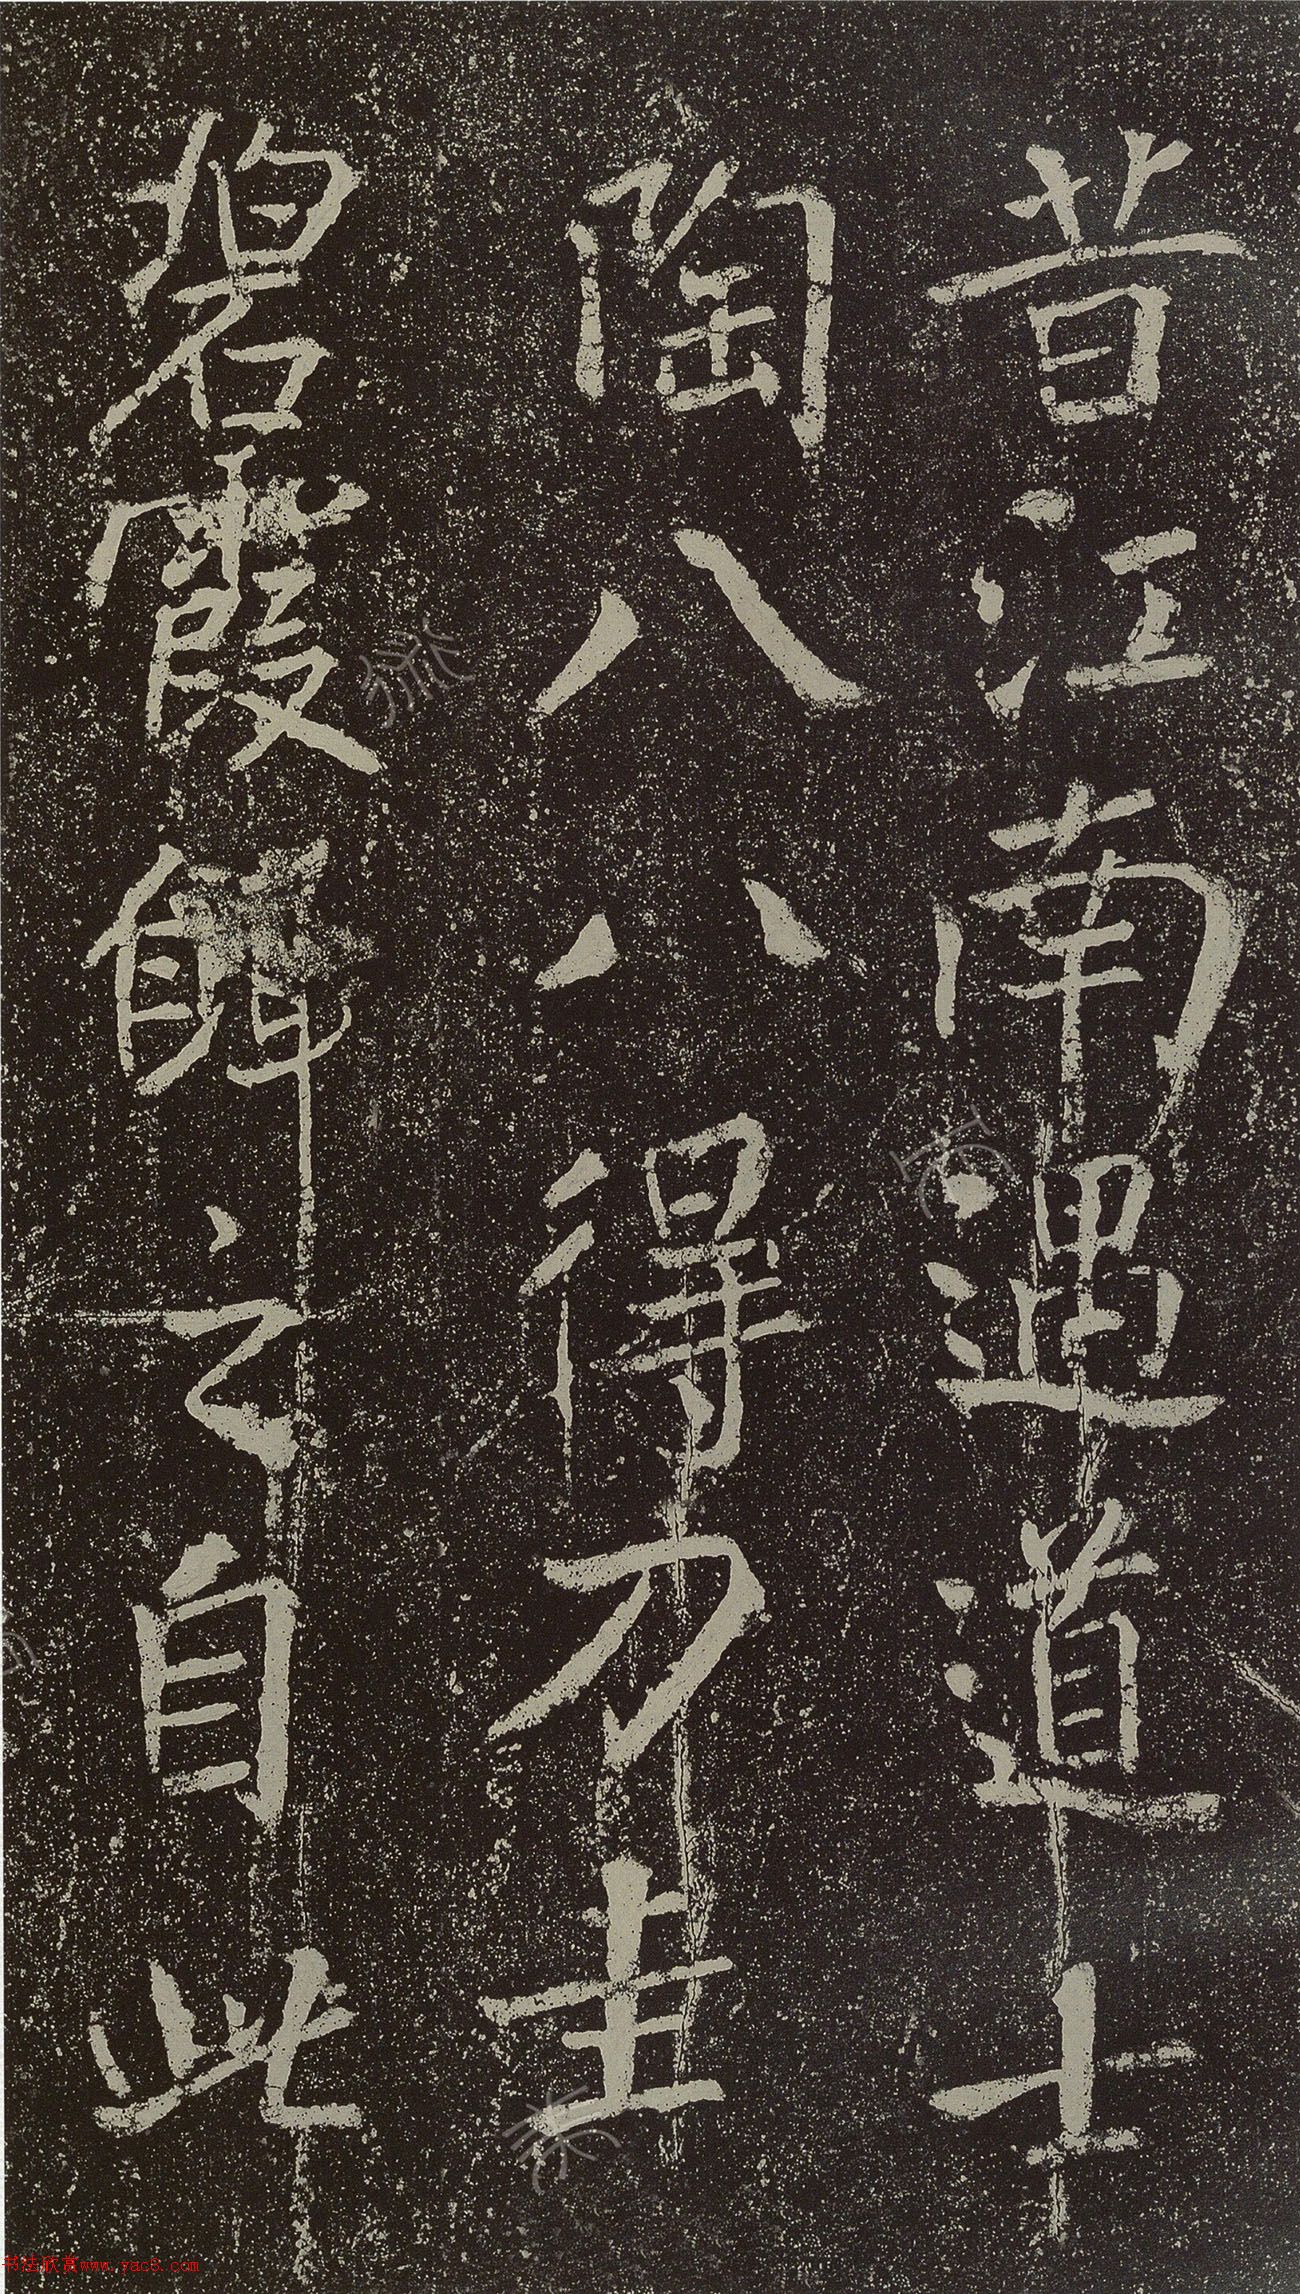 昔江南遇道士
陶八八得刀圭
碧霞餌之自此
书法欣赏www.yac8.com